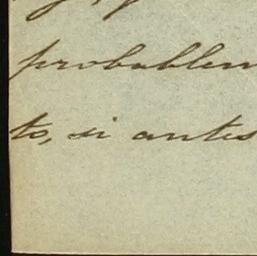 probablem
to, si antes